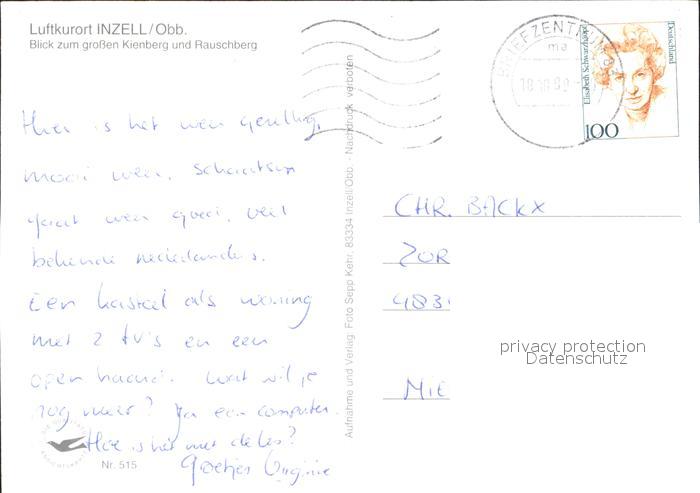 Luftkurort INZELL/Obb.
Blick zum großen Kienberg und Rauschberg
Hier is het weer gezellig,
mooi weer, schaatsen
gaat weer goed, veel
bekende nederlanders.
Een kasteel als woning
met 2 tv's en een
open haard. Wat wil je
nog meer? Ja een computer.
Hoe is het met de les?
Groetjes
Nr. 515
Aufnahme und Verlag: Foto Sepp Kehr, 83334 Inzell/Obb. - Nachdruck verboten
BRIEFZENTRUM 83
ma
Elisabeth Schwarzhaupt
Deutschland
100
CHR. BACKX
ZUR
483
MIE
privacy protection
Datenschutz